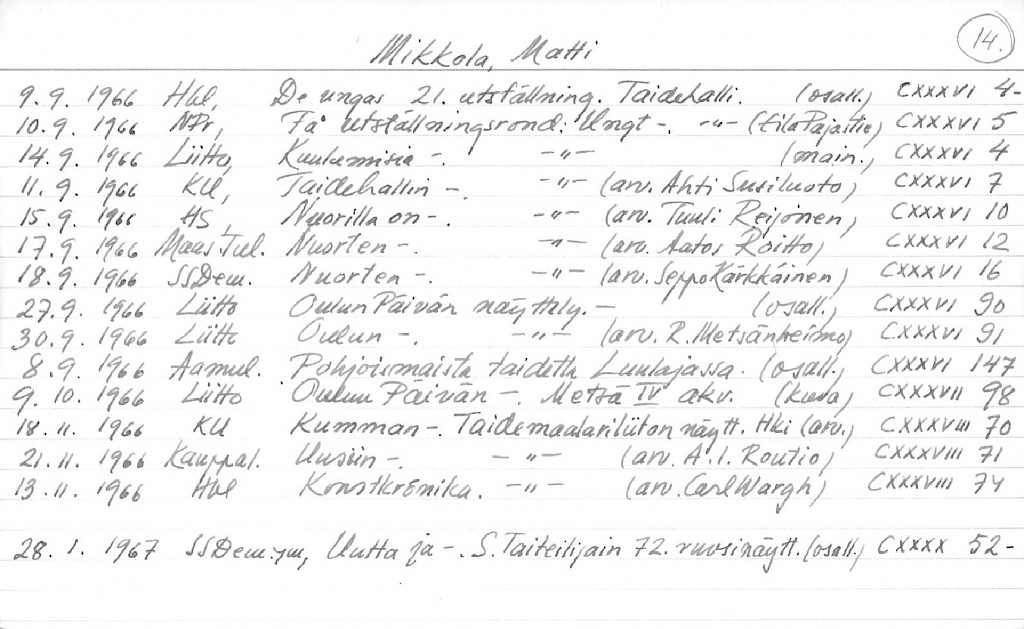 14.
Mikkola, Matti
9.9. 1966 Hbl, De ungas 21. utställning. Taidehalli. (osall.) CXXXVI 4-
10.9. 1966 NPr, Få utställningsrond: Ungt -. -"- (Eila Pajastie) CXXXVI 5
14.9. 1966 Liitto, Kuulumisia -. -"- (main., CXXXVI 4
11.9. 1966 KU, Taidehallin -. -"- (arv. Ahti Susiluoto) CXXXVI 7
15.9. 1966 HS, Nuorilla on -. -"- (arv. Tuuli Reijonen) CXXXVI 10
17.9. 1966 Maas.Tul. Nuorten -. -"- (arv. Aatos Roitto) CXXXVI 12
18.9. 1966 SSDem. Nuorten -. -"- (arv. Seppo Kärkkäinen) CXXXVI 16
27.9. 1966 Liitto Oulun Päivän näyttely. - (osall.) CXXXVI 90
30.9. 1966 Liitto Oulun -. -"- (arv. R. Metsänheimo) CXXXVI 91
8.9. 1966 Aamul. Pohjoismaista taidetta Luulajassa. (osall.) CXXXVI 147
9.10. 1966 Liitto Oulun Päivän -. Metsä IV akv. (kuva) CXXXVII 98
18.11. 1966 KU Kumman -. Taidemaalariliiton näytt. Hki (arv.) CXXXVIII 70
21.11. 1966 Kauppal. Uusiin -. -"- (arv. A.I. Routio) CXXXVIII 71
13.11. 1966 Hbl Konstkrönika. -"- (arv. Carl Wargh) CXXXVIII 74
28.1. 1967 SSDem:ym, Uutta ja -. S. Taiteilijain 72. vuosinäytt. (osall.) CXXXX 52-